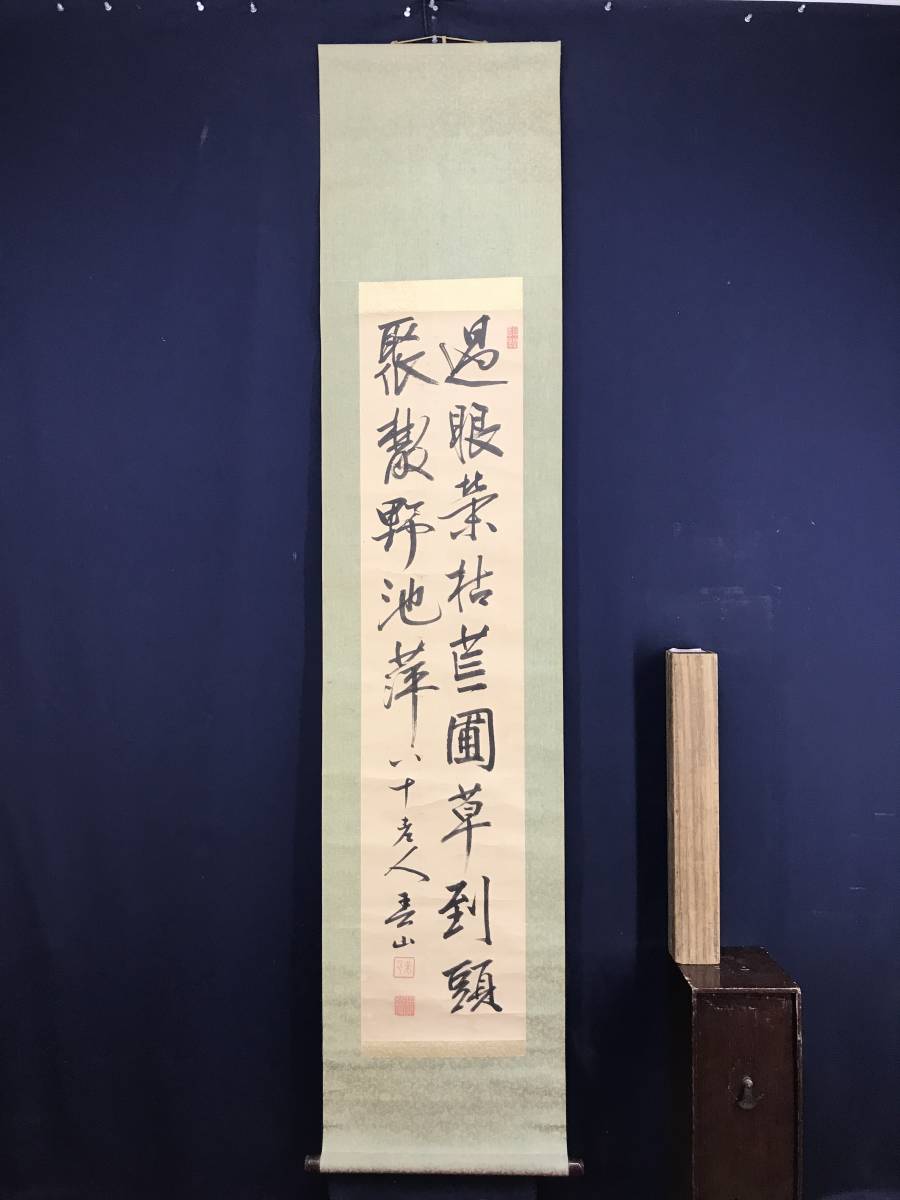 過眼榮枯荒圃草到頭
聚散野池萍八十老人春山